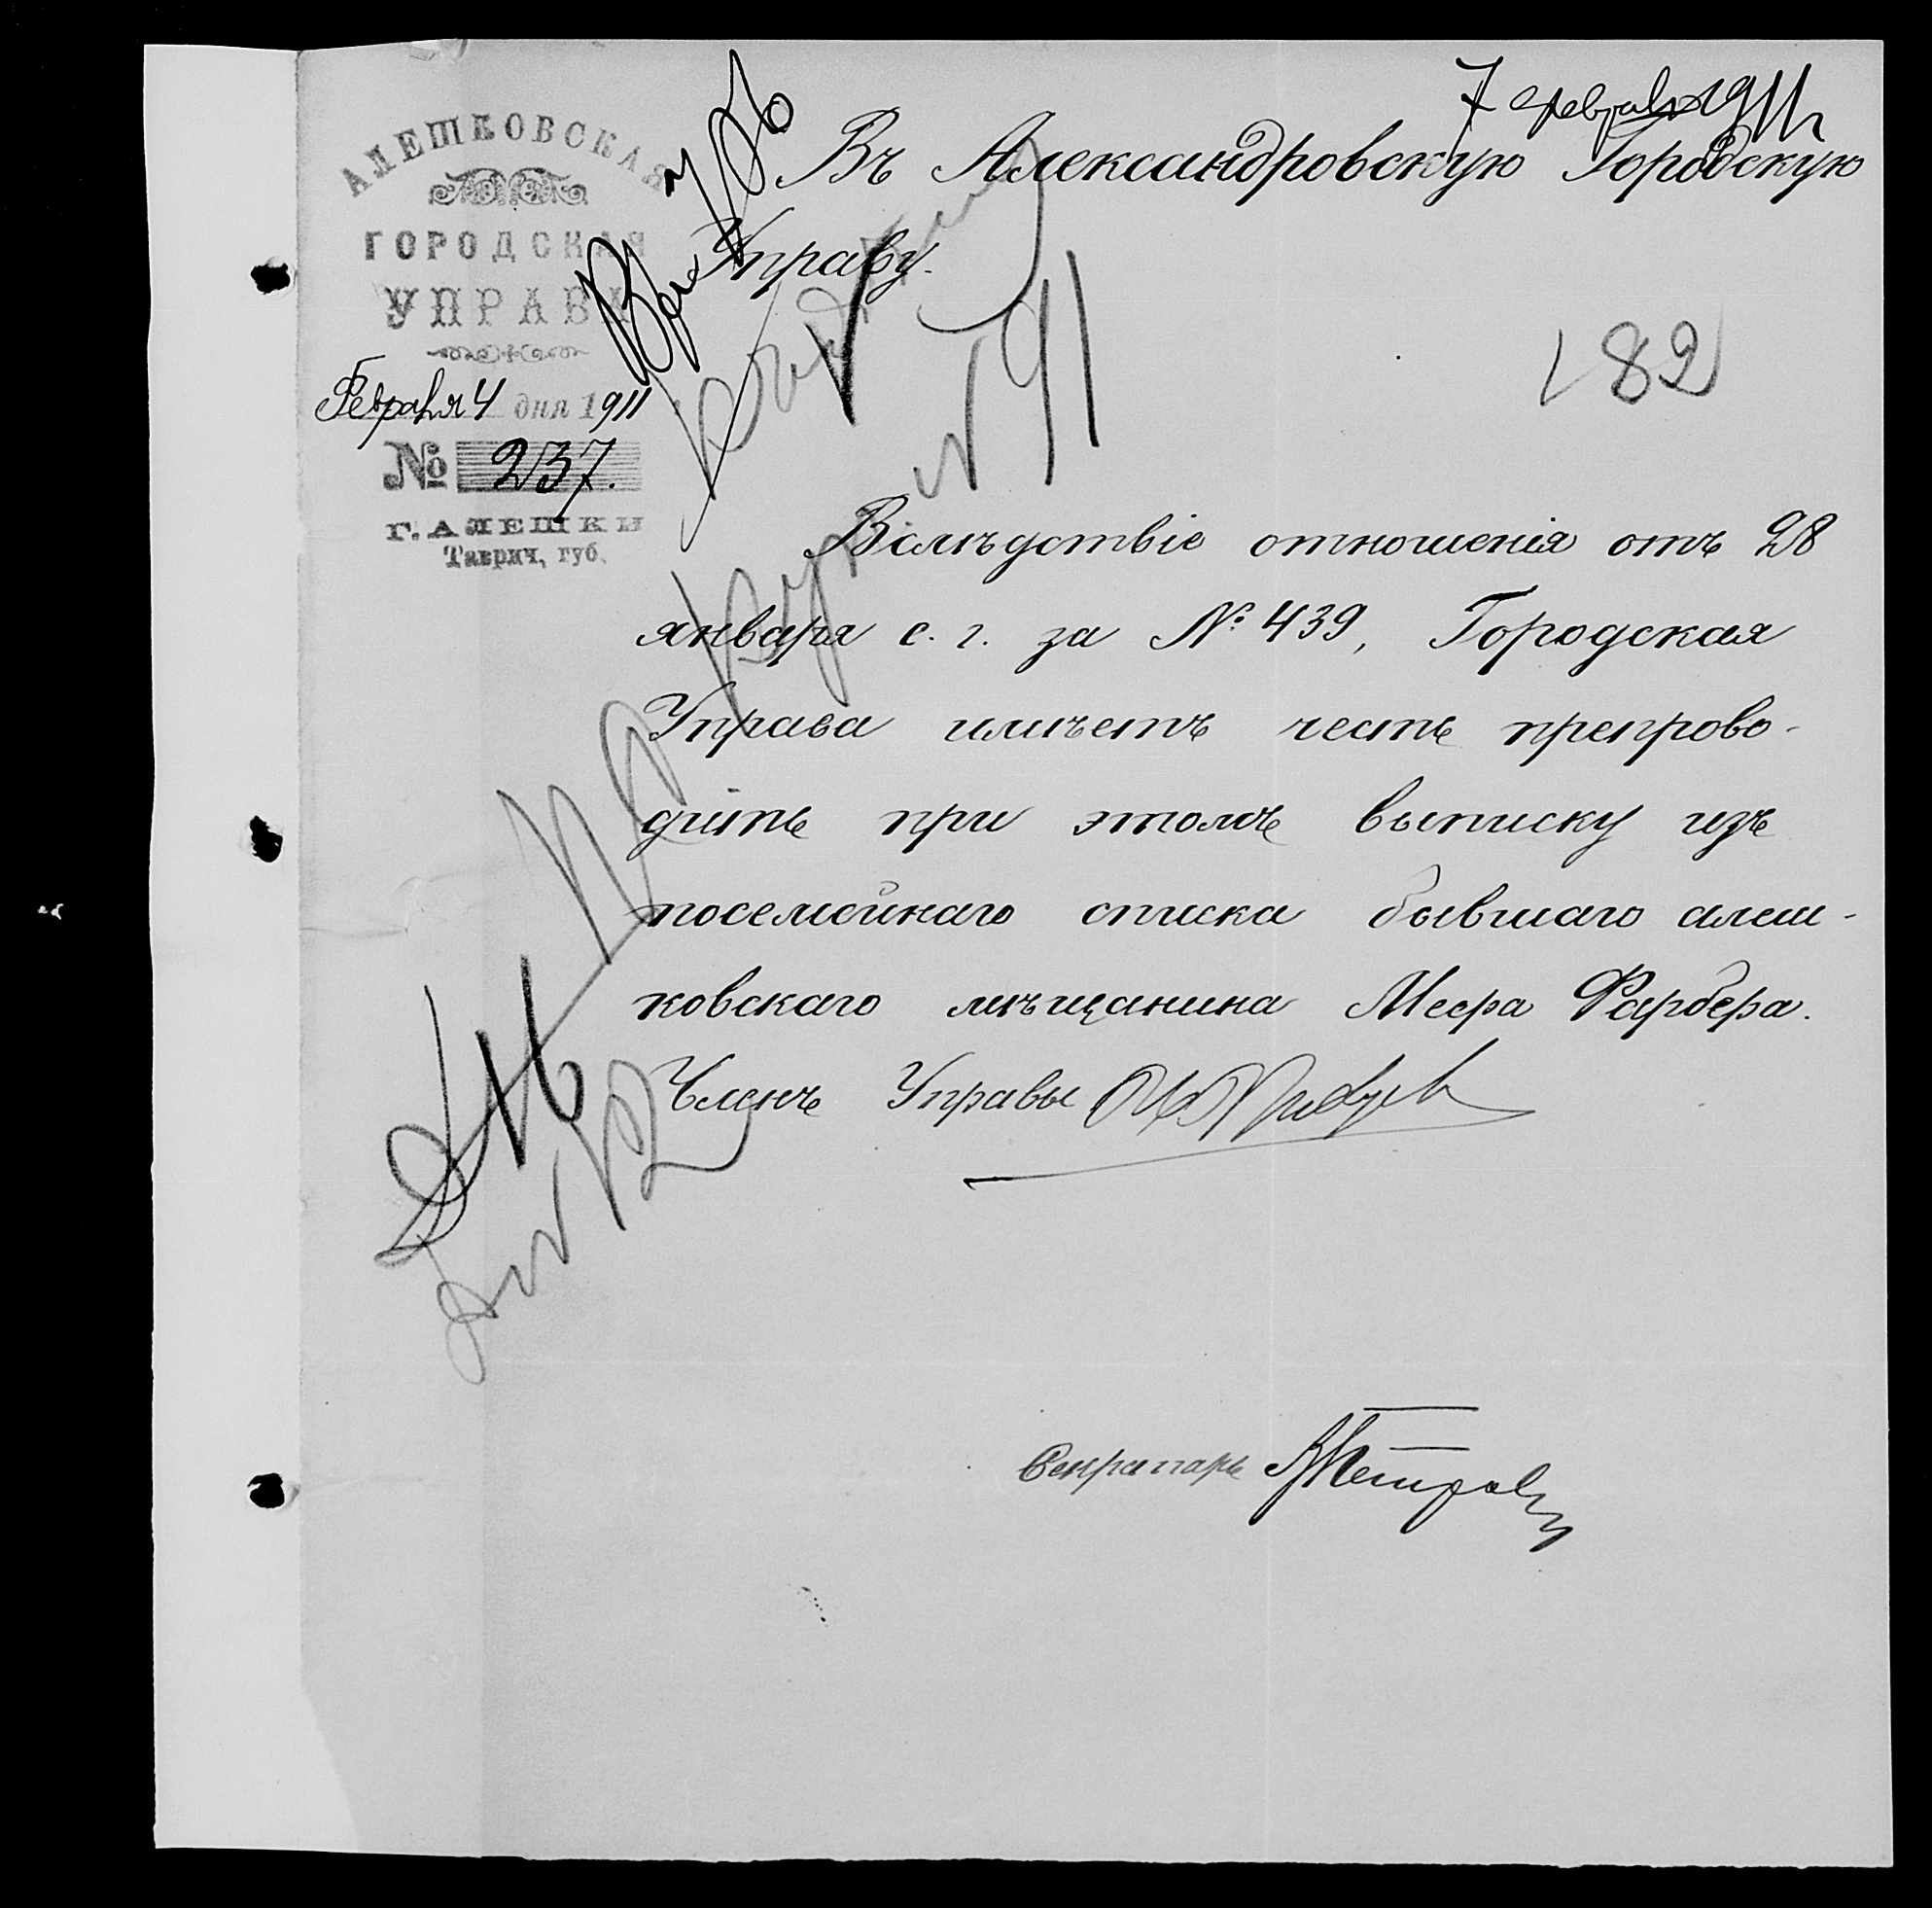 7 февраля 1911 г.
АЛЕШКОВСКАЯ
ГОРОДСКАЯ
УПРАВА
Февраля 4 дня 1911
№ 237.
Г. АЛЕШКИ
Таврич, губ.
Въ Александровскую Городскую
Управу.
№ 91
182
Вслѣдствіе отношенія отъ 28
января с. г. за № 439, Городская
Управа имѣетъ честь препрово-
дить при этомъ выписку изъ
посемейнаго списка бывшаго алеш-
ковскаго мѣщанина Меера Фарбера.
Членъ Управы
Секретарь Петров